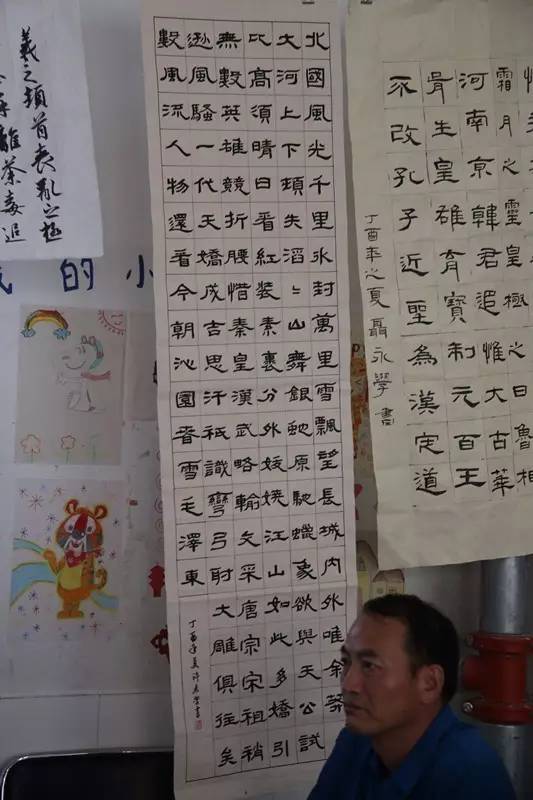 霜月之靈皇極之日魯相
河南京韓君追惟大古華
骨生皇雄育寶制元百王
不改孔子近聖為漢定道
丁酉年之夏聶永學書
北國風光千里氷封萬里雪飄望長城內外唯余莽
大河上下頓失滔〻山舞銀蛇原馳蠟象欲與天公試
比高須晴日看紅裝素裹分外妖嬈江山如此多嬌引
無數英雄競折腰惜秦皇漢武略輸文采唐宗宋祖稍
遜風騷一代天嬌成吉思汗祗識彎弓射大雕俱往矣
數風流人物還看今朝沁園春雪毛澤東
丁酉年夏許
羲之頓首喪亂之極
離荼毒追
的小